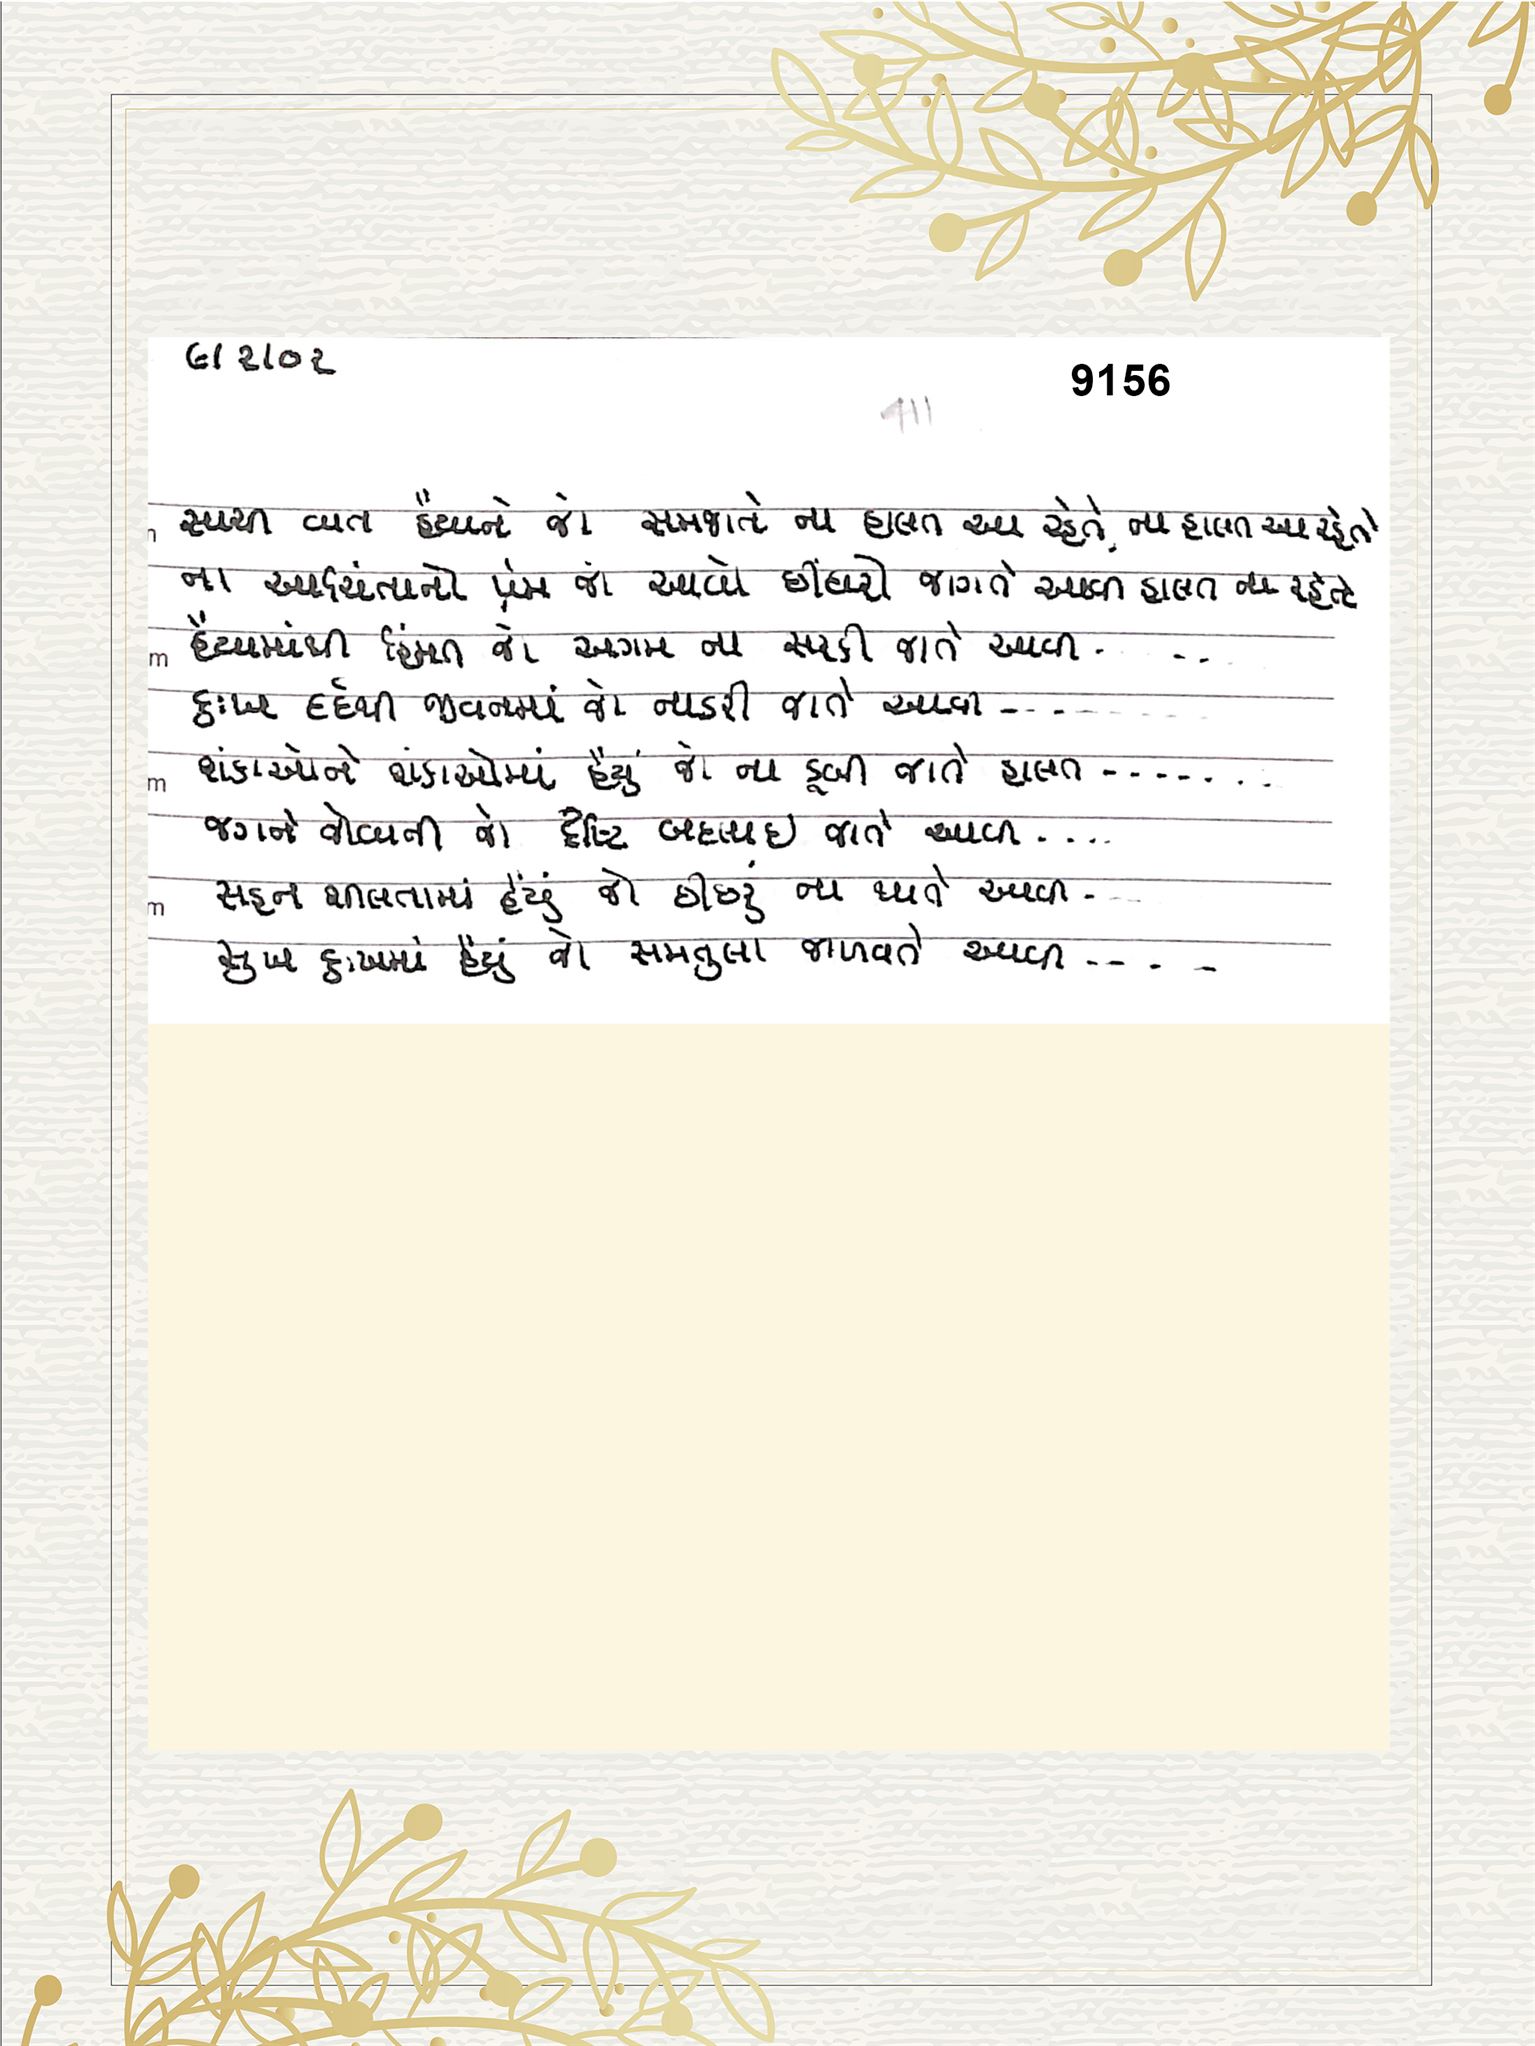 ૯।૨।૦૨
9156
સાચી વાત હૈયાને જો સમજાતે ના હાલત આ રહેતે, ના હાલત આ રહેતે
ના પ્રેમ જો આવો જાગતે આવી હાલત ના રહેતે
હૈયામાંથી હિંમત જો અગમ ના સરકી જાતે આવી. . . .
દુઃખ દર્દથી જીવનમાં જો ના ડરી જાતે આવી -------
શંકાઓને શંકાઓમાં હૈયું જો ના ડૂબી જાતે હાલત -------
જગને જોવાની જો દૃષ્ટિ બદલાઇ જાતે આવી ....
સહન શીલતામાં હૈયું જો છીછરું ના થાતે આવી ----
સુખ દુઃખમાં હૈયું જો સમતુલા જાળવતે આવી -----